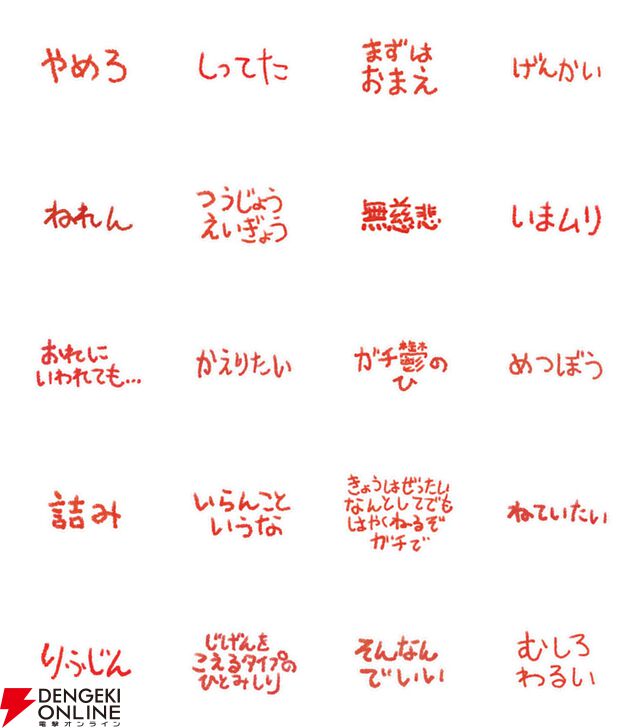 やめろ
しってた
まずは
おまえ
げんかい
ねれん
つうじょう
えいぎょう
無慈悲
いまムリ
おれに
いわれても…
かえりたい
ガチ鬱の
ひ
めつぼう
詰み
いらんこと
いうな
きょうはぜったい
なんとしてでも
はやくねーるぞ
ガチで
ねていたい
りふじん
じげんを
こえるタイプの
ひとみしり
そんなん
でいい
むしろ
わるい
DENGEKI
ONLINE
電撃オンライン